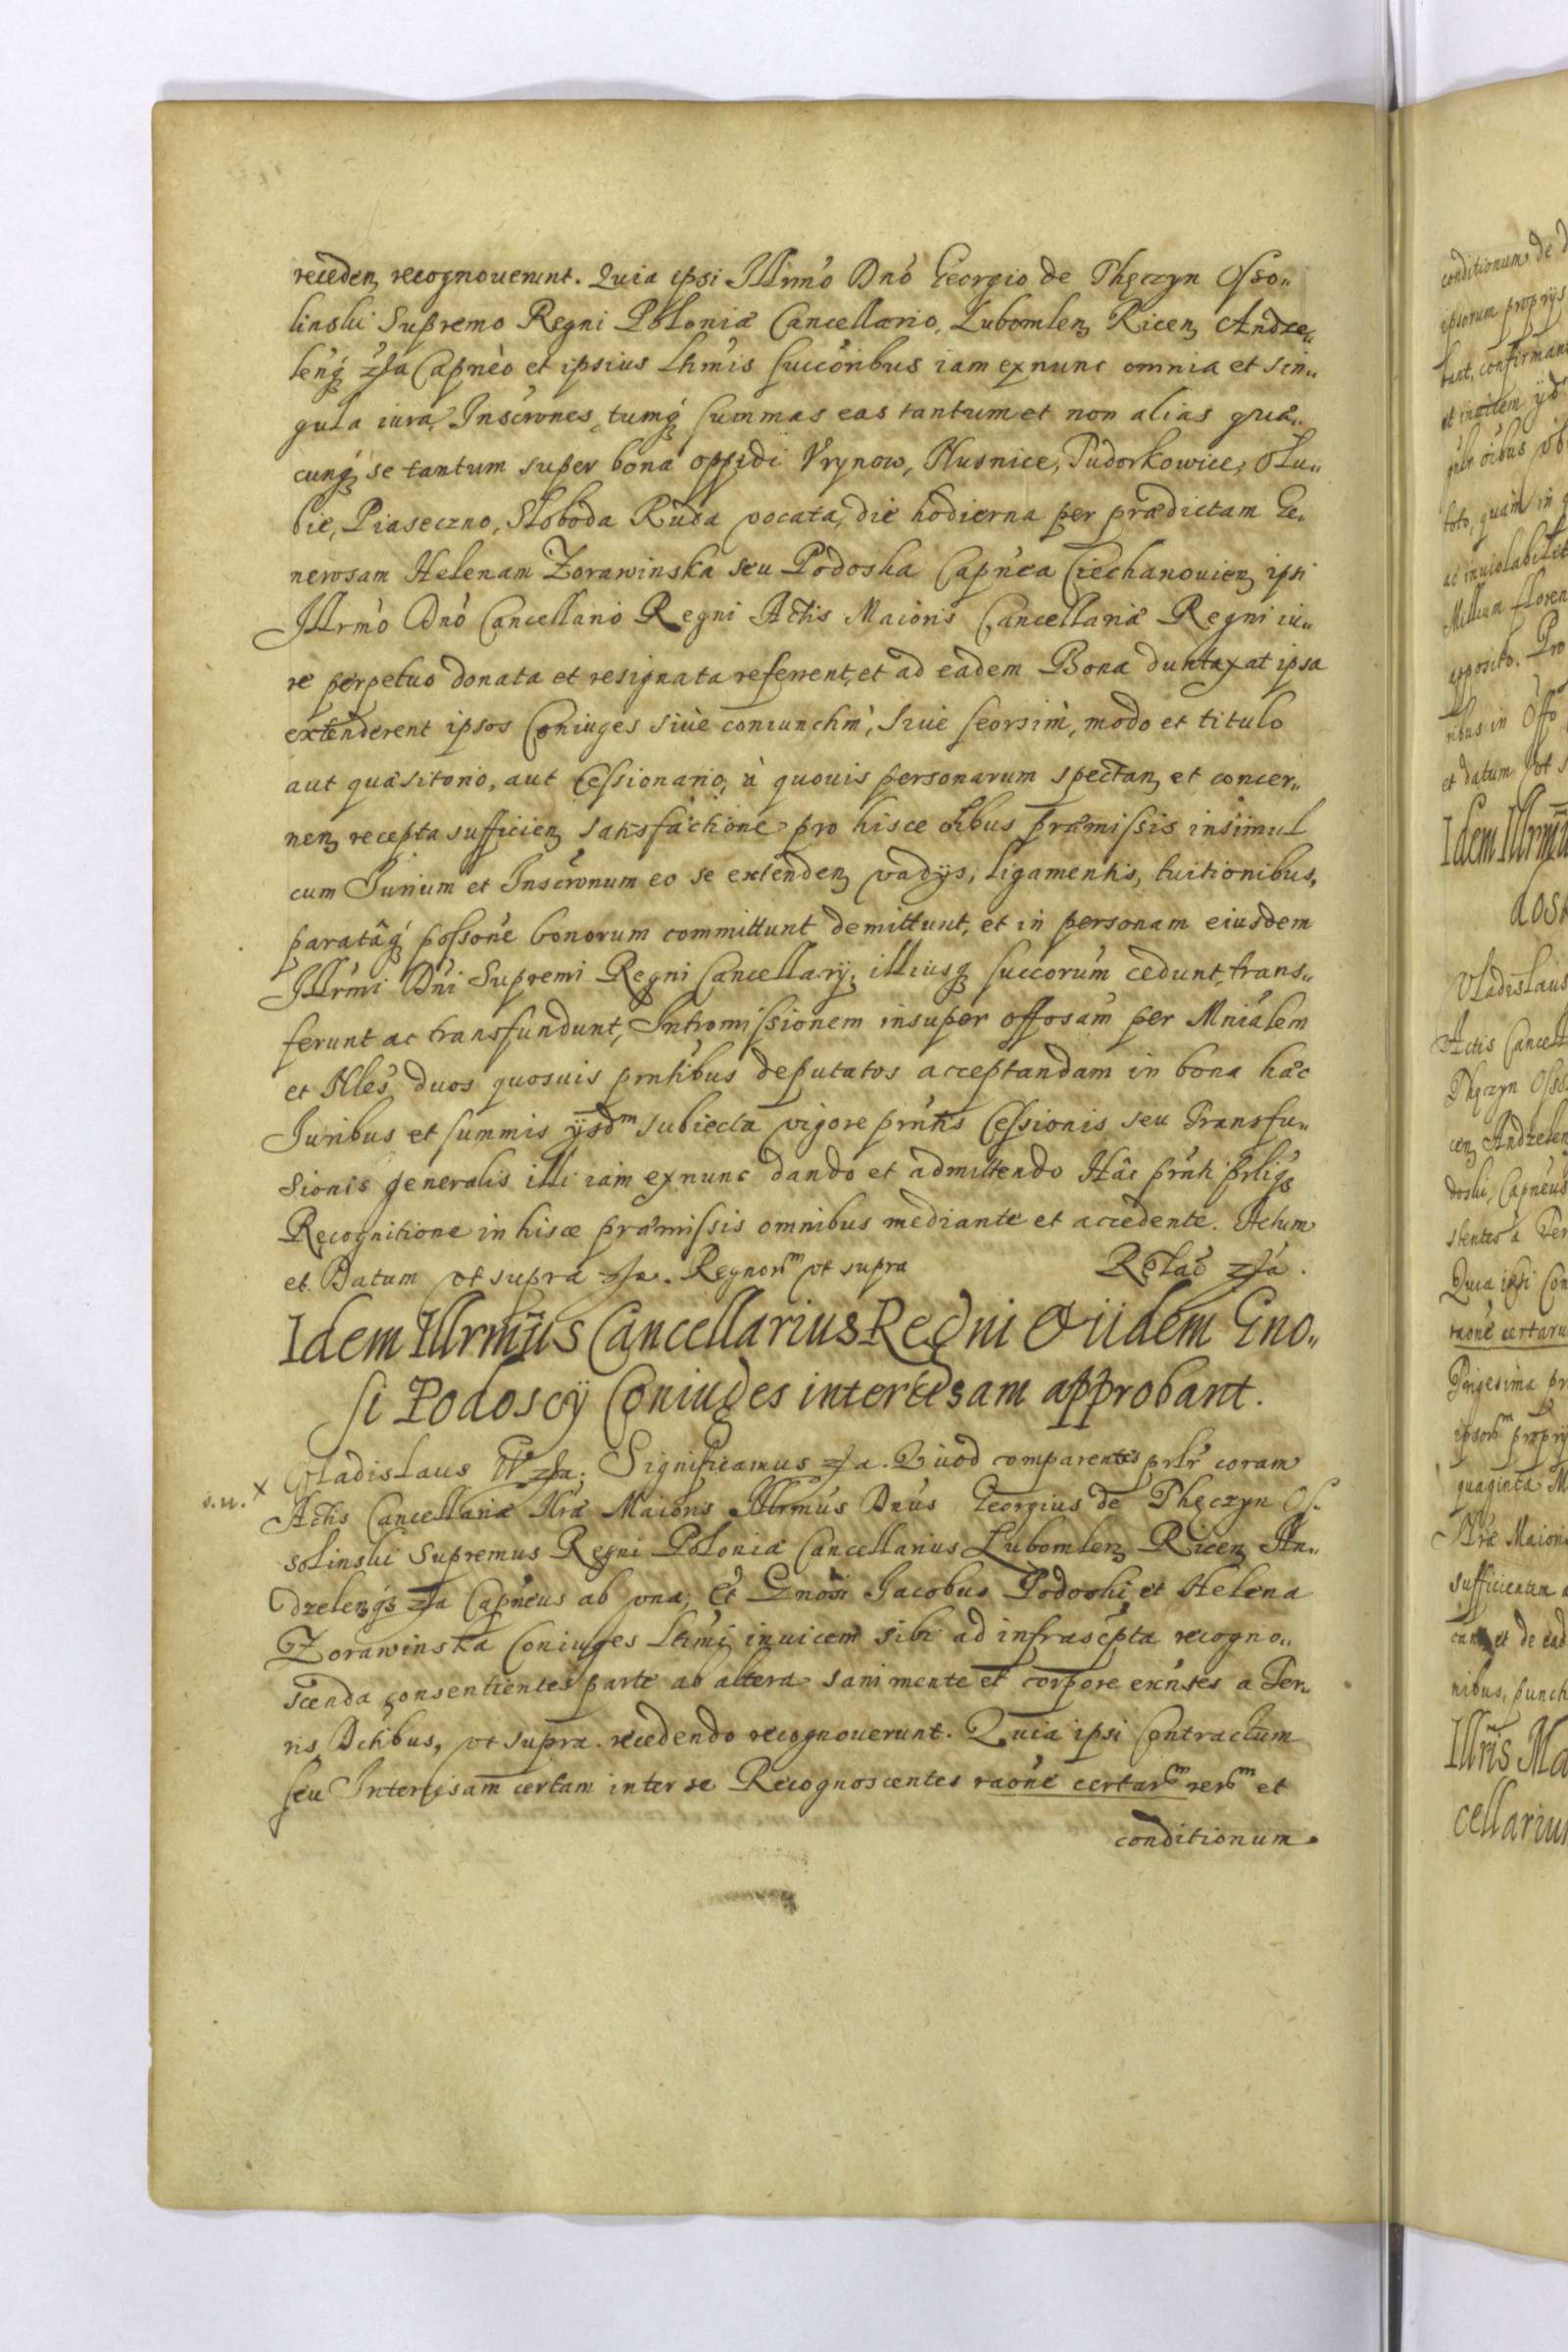 receden recognouerunt. Quia ipsi Illrmo Dno Georgio de Thęczyn Osso„
linski Supremo Regni Poloniæ Cancellario, Lubomlen Ricen Andze„
lenq́ʒ zJa Capneo et ipsius Lhmis succoribus iam ex nunc omnia et sin„
gula iura, Inscrones, tumq́ʒ summas eas tantum et non alias quæ„
cunq́ʒ se tantum super bona oppidi Vrynow, Husnice, Tudorkowice, Olu„
bie, Piaseczno, Sloboda Ruda vocata, die hodierna per prædictam Ge„
nerosam Helenam Zorawinska seu Podoska Capnea Ciechanouien ipsi
Illrmo Dno Cancellario Regni Actis Maioris Cancellariæ Regni iu„
re perpetuo donata et resignata referrent, et ad eadem Bona duntaxat ipsa
extenderent ipsos Coniuges siue coniunctim, siue seorsim, modo et titulo
aut quæsitorio, aut Cessionario, à quouis personarum spectan et concer„
nen recepta sufficien satisfactione pro hisce oibus præmissis insimul
cum Iurium et Inscronum eo se extenden vadijs, ligamentis, tuitionibus,
paratâq́ʒ possone bonorum committunt demittunt, et in personam eiusdem
Illrmi Dni Supremi Regni Cancellarij, illiusqʒ succorum cedunt, trans„
ferunt ac transfundunt, Intromissionem insuper offosam per Mnialem
et Nles duos quosuis prntibus deputatos acceptandam in bona hæc
Iuribus et summis ijsdm subiecta vigore prntis Cessionis seu Transfu„
sionis generalis illi iam ex nunc dando et admittendo Hâc prnti prligs
Recognitione in hisce præmissis omnibus mediante et accedente. Actum
et Datum vt supra zJa. Regnorm vt supra Relaö zJa.
Idem Illrmus Cancellarius Regni & iidem Gno„
si Podoscÿ Coniuges intercisam approbant.
Vladislaus IV zJa. Significamus zJa. Quod comparentes prlr coram
s.u. x Actis Cancellariæ Nræ Maioris Illrmus Dnus Georgius de Thęczyn Os„
solinski Supremus Regni Poloniæ Cancellarius Lubomlen Ricen An„
dzelenqʒ zJa Capneus ab vna, Et Gnosi Jacobus Podoski et Helena
Zorawinska Coniuges Lhmi inuicem sibi ad infrascpta recogno„
scenda consentientes parte ab altera sani mente et corpore exnstes a Ter„
ris Dctibus, vt supra recedendo recognouerunt. Quia ipsi Contractum
seu Intercisam certam inter se Recognoscentes raone certarm rerm et
conditionum